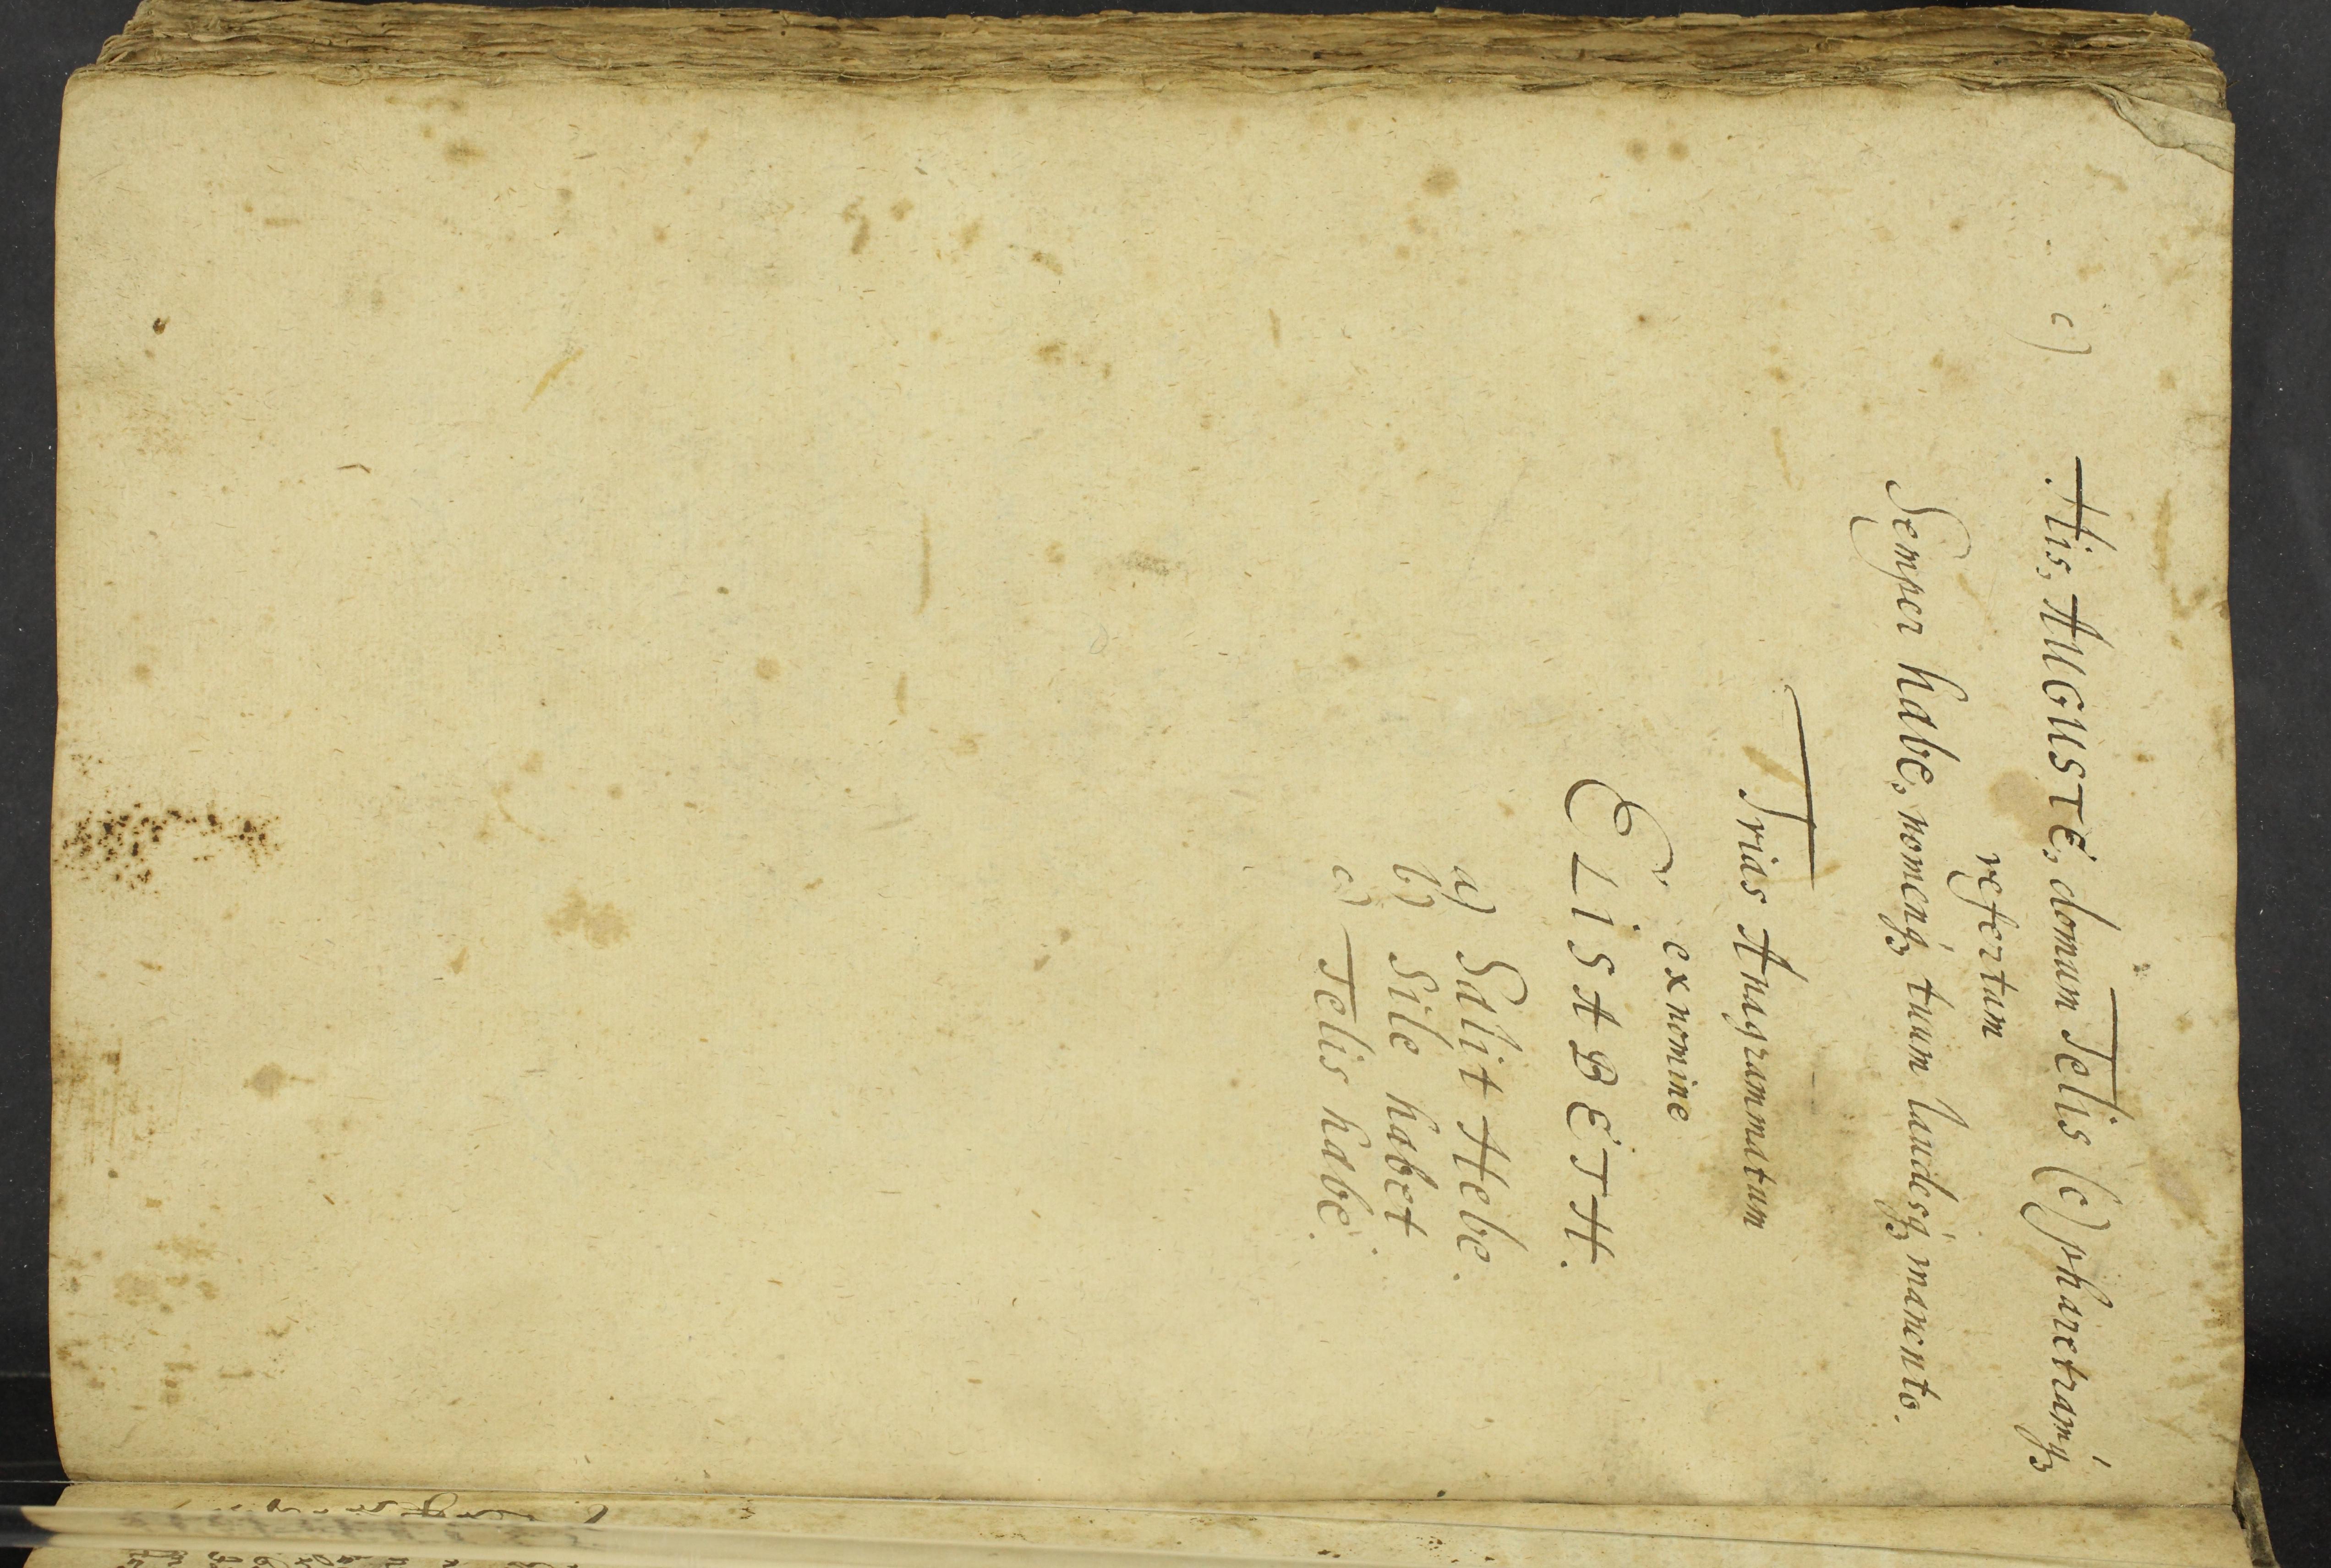 c) His, AUGUSTE, domum Telis (c) pharetramq;
refertam
Semper habe, nomenq; tuum laudesq; manento.
Trias Anagrammatum
ex nomine
ELISABETH.
a) Salit Hebe.
b) Sile habet
c) Telis habe.